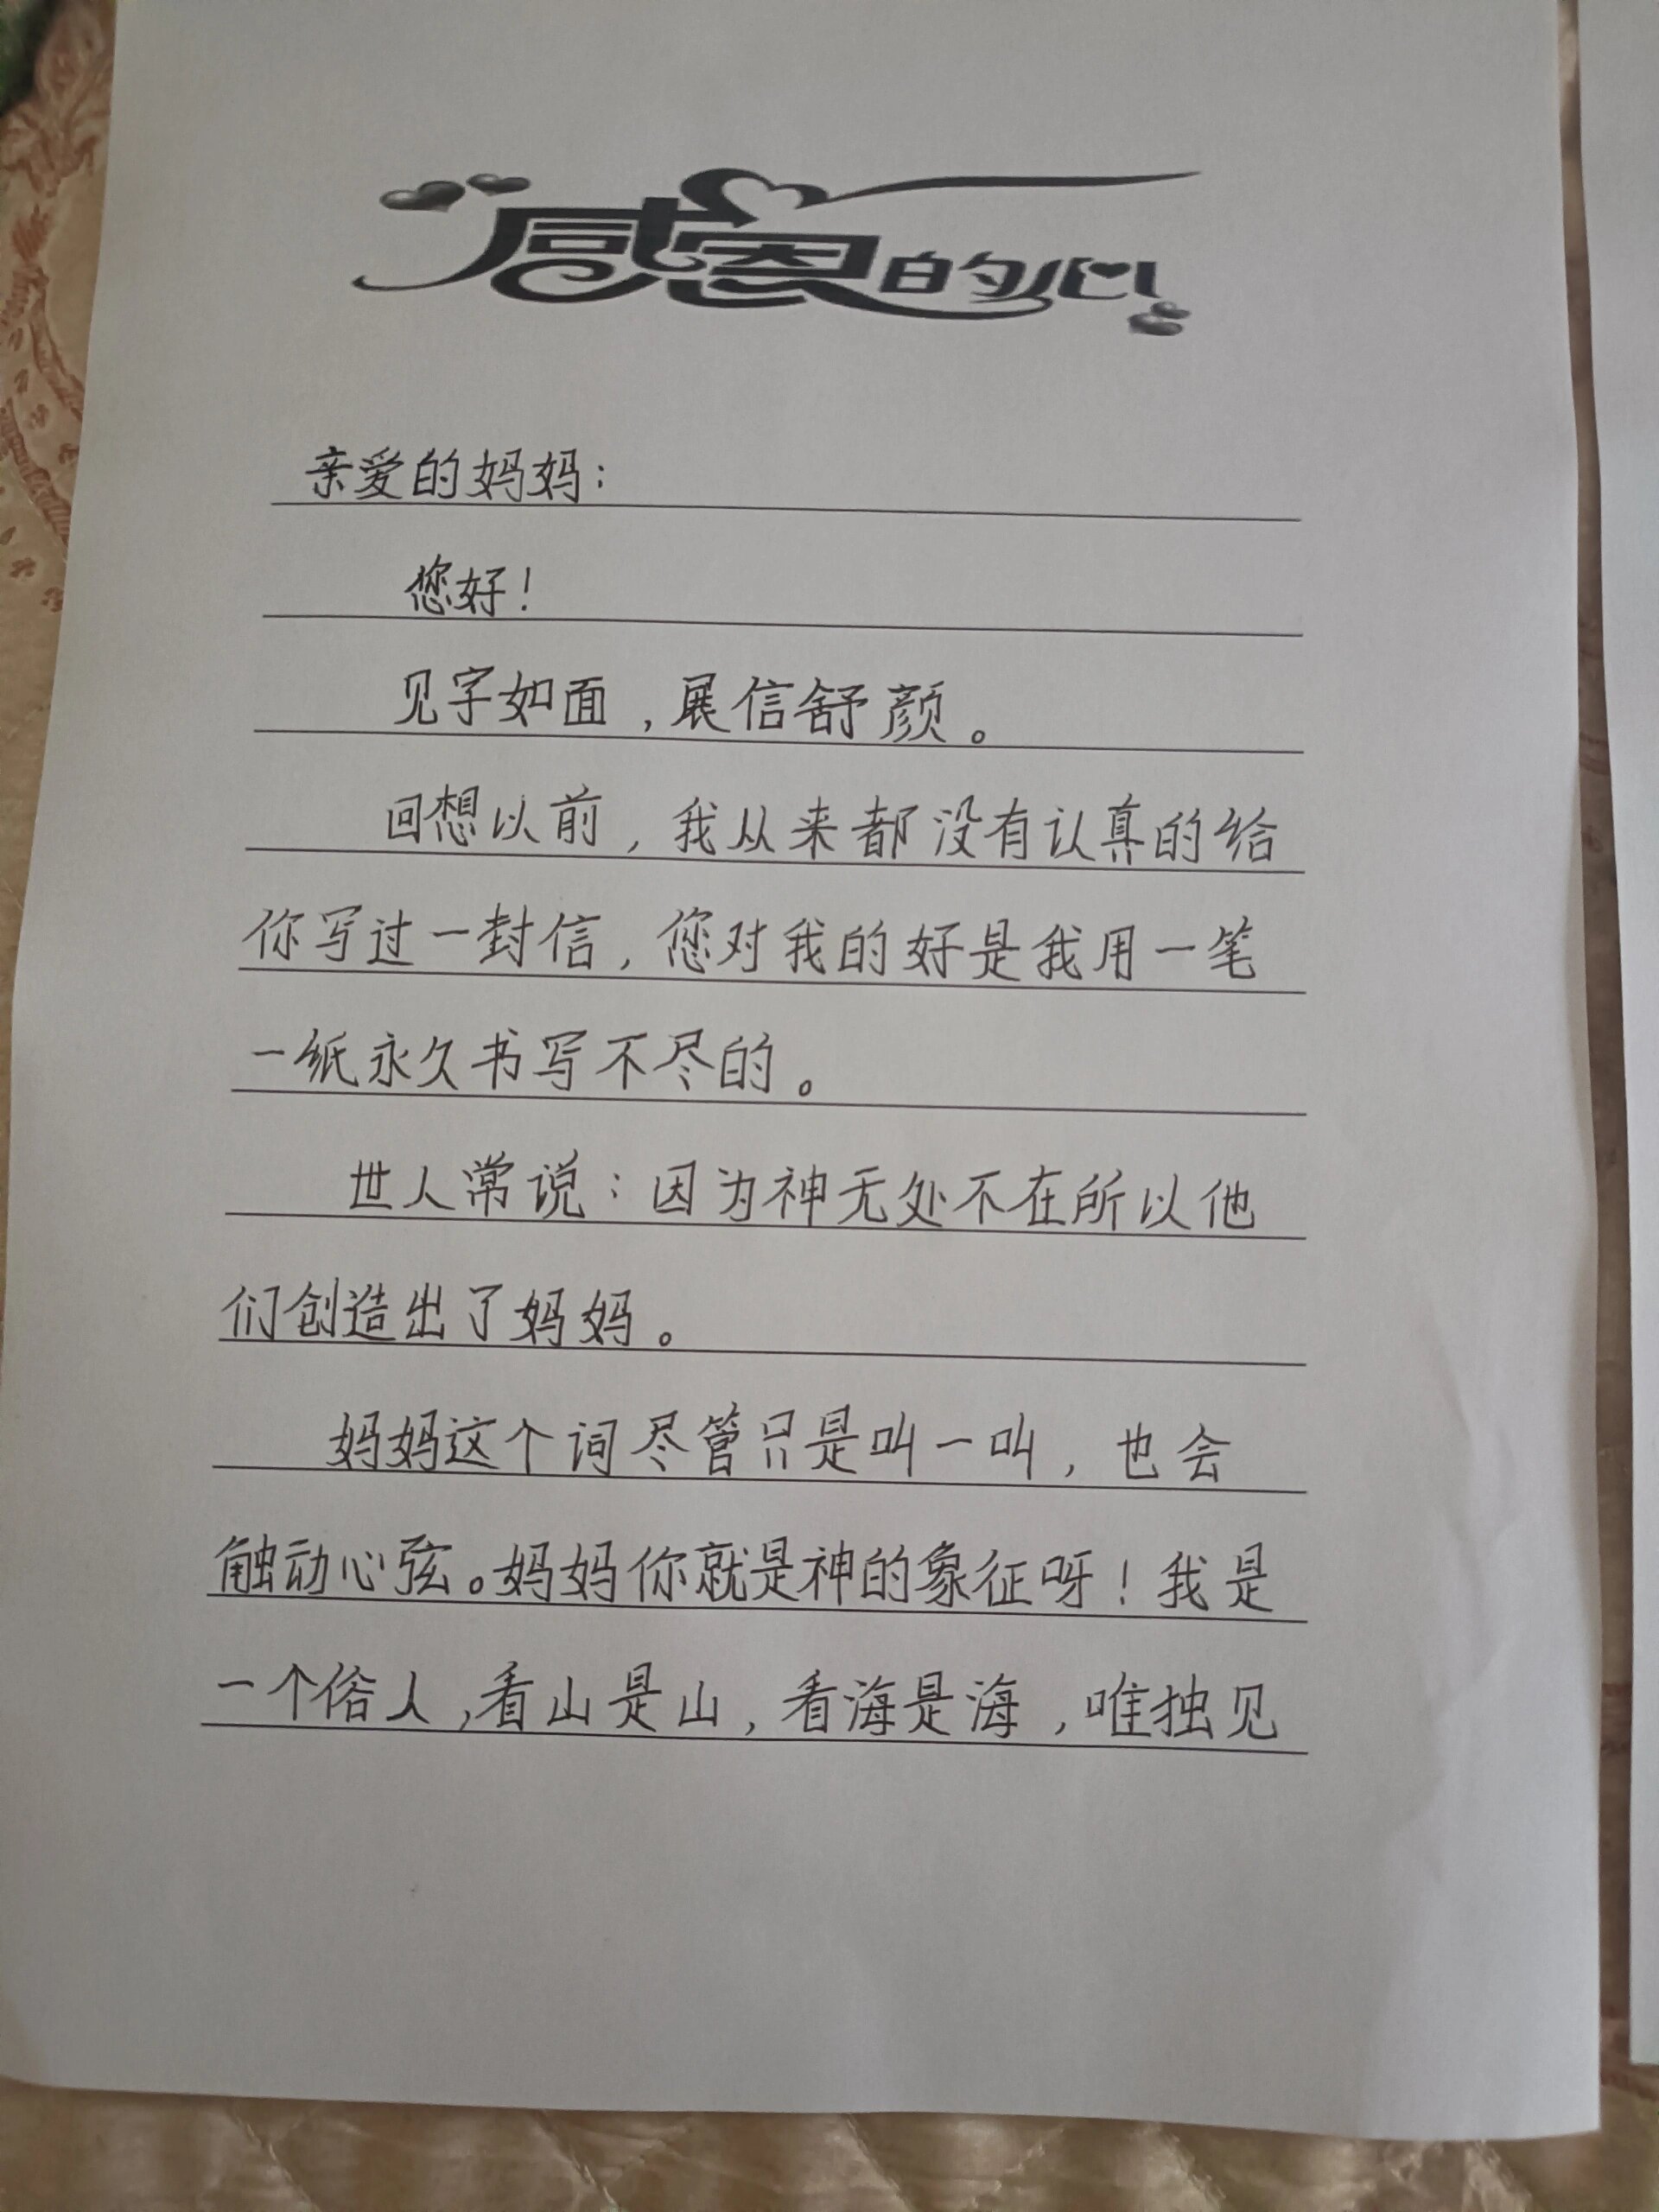 感恩的心
亲爱的妈妈：
您好！
见字如面，展信舒颜。
回想以前，我从来都没有认真的给
你写过一封信，您对我的好是我用一笔
一纸永久书写不尽的。
世人常说：因为神无处不在所以他
们创造出了妈妈。
妈妈这个词尽管只是叫一叫，也会
触动心弦。妈妈你就是神的象征呀！我是
一个俗人，看山是山，看海是海，唯独见